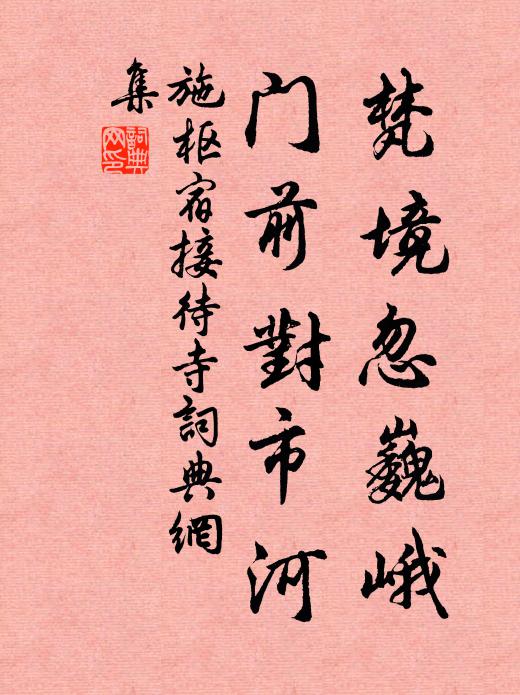 梵境忽巍峨
门前對市河
施枢宿接待寺詞典網
集
詞典网印